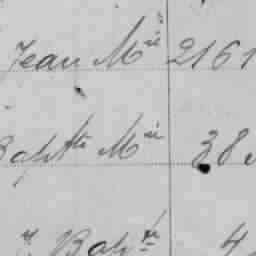 Jean Mie 2161
Bapte Mie 38
J. Bapte 4